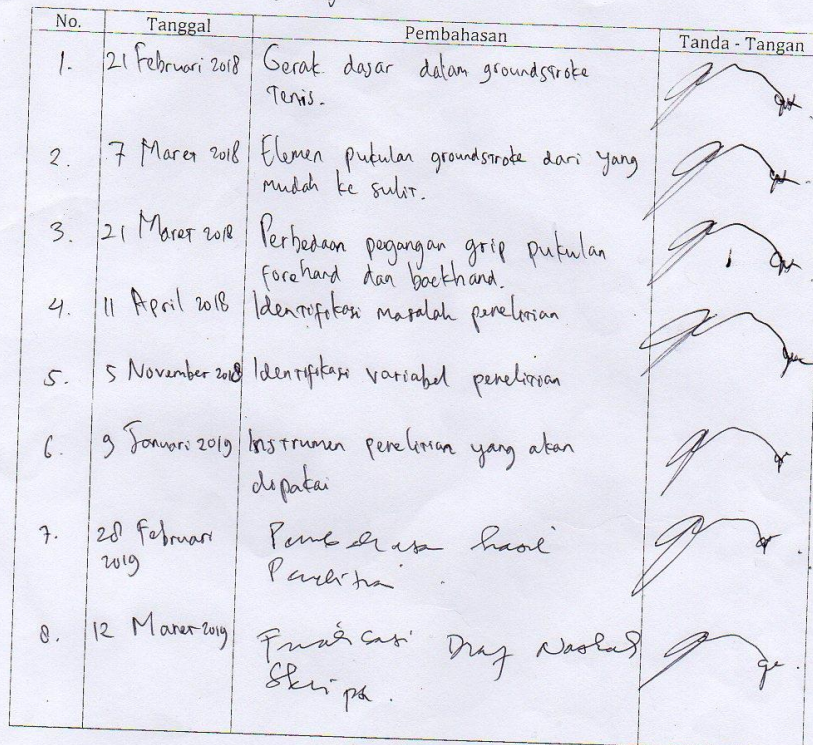 No. Tanggal Pembahasan Tanda - Tangan
1. 21 Februari 2018 Gerak dasar dalam groundstroke
Tenis.
2. 7 Maret 2018 Elemen pukulan groundstroke dari yang
mudah ke sulit.
3. 21 Maret 2018 Perbedaan pegangan grip pukulan
forehand dan backhand.
4. 11 April 2018 Identifikasi masalah penelitian
5. 5 November 2018 Identifikasi variabel penelitian
6. 9 Januari 2019 Instrumen penelitian yang akan
dipakai
7. 28 Februari Pembahasan hasil
2019 Penelitian
8. 12 Maret 2019 Finalisasi Draf Naskah
Skripsi.